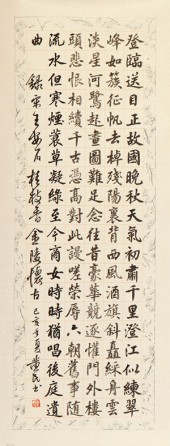 登臨送目正故國晚秋天氣初肅千里澄江似練翠
峰如簇征帆去棹殘陽裏背西風酒旗斜矗綵舟雲
淡星河鷺起畫圖難足念往昔豪華競逐嘆門外樓
頭悲恨相續千古憑高對此謾嗟榮辱六朝舊事隨
流水但寒煙衰草凝綠至今商女時時猶唱後庭遺
曲 錄宋王安石桂枝香金陵懷古 己亥年夏